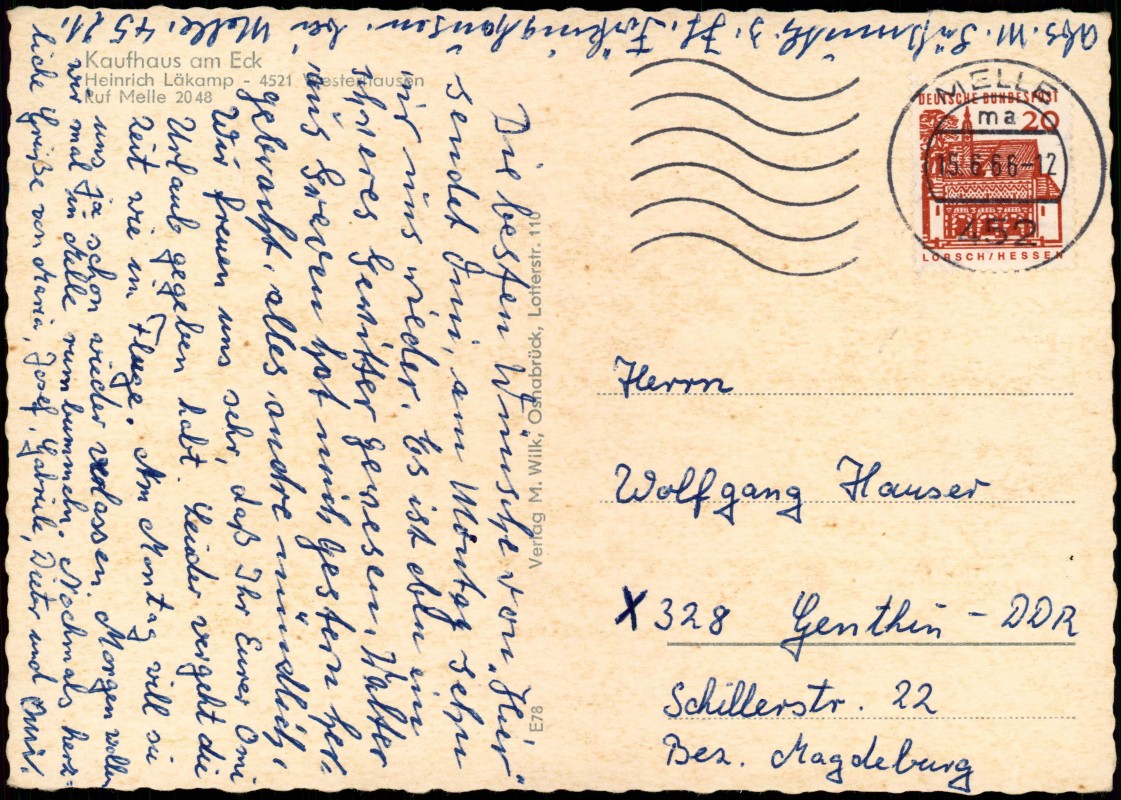 Abs. W. z. Zt. bei Melle. 4521.
Kaufhaus am Eck
Heinrich Läkamp - 4521 Westerhausen
Ruf Melle 2048
Die besten Wünsche von "Hier"
sendet Omi, am Montag sehn
wir uns wieder. Es ist eben ein
schweres Gewitter gewesen. Walter
aus Greven hat mich gestern her-
gebracht, alles andre mündlich,
Wir freuen uns sehr, daß Ihr Eurer Omi
Urlaub gegeben habt. Leider vergeht die
Zeit wie im Fluge. Am Montag will sie
uns ja schon wieder verlassen. Morgen wollen
wir mal in Melle rumbummeln. Nochmals herz=
liche Grüße von Maria, Josef, Gabriele, Dieter und Omi.
Verlag M. Wilk, Osnabrück, Lotterstr. 110
E78
MELLE
ma
15.6.66-12
452
DEUTSCHE BUNDESPOST
20
LORSCH/HESSEN
Herrn
Wolfgang Hauser
X 328 Genthin - DDR
Schillerstr. 22
Bez. Magdeburg